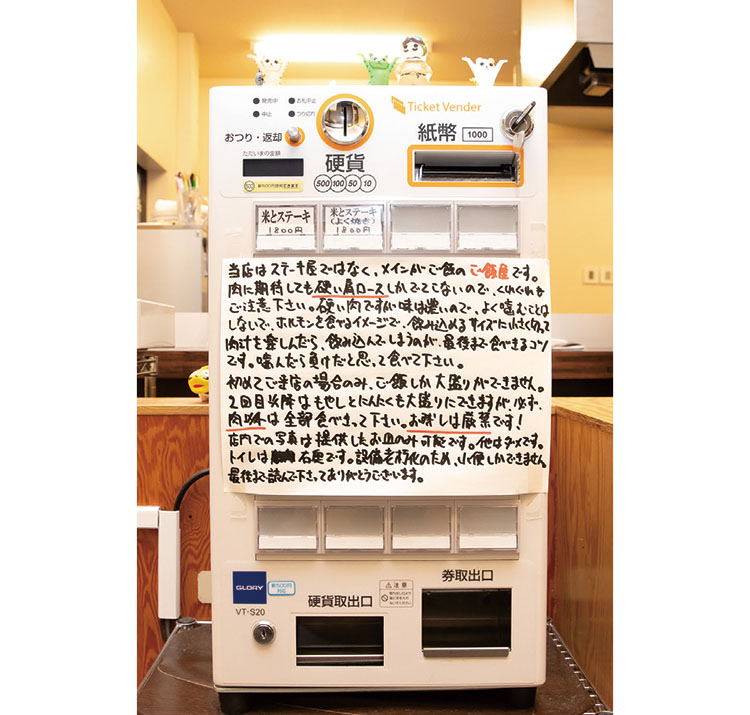 発売中
お札中止
中止
つり切れ
おつり・返却
Ticket Vender
硬貨
500 100 50 10
紙幣 1000
ただいまの金額
新500円使用できます
米とステーキ
1800円
米とステーキ
(よく焼き)
1800円
当店はステーキ屋ではなく、メインがご飯のご飯屋です。
肉に期待しても硬い肩ロースしかでてこないので、くれぐれも
ご注意下さい。硬い肉ですが味は濃いので、よく噛むことは
しないで、ホルモンを食べるイメージで、飲み込めるサイズに小さく切って
肉汁を楽しんだら、飲み込んでしまうのが、最後まで食べきるコツ
です。噛んだら負けだと思って食べて下さい。
初めてご来店の場合のみ、ご飯しか大盛りができません。
2回目以降はもやしとにんにくも大盛りにできますが必ず、
肉以外は全部食べきって下さい。お残しは厳禁です!
店内での写真は提供したお皿のみ可能です。他はダメです。
トイレは右奥です。設備老朽化のため、小便しかできません
最後まで読んで下さってありがとうございます。
GLORY
新500円
対応
VT-S20
硬貨取出口
注意
券取出口